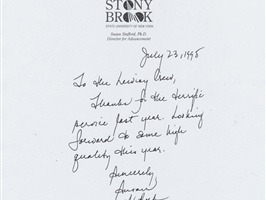 STONY
BROOK
STATE UNIVERSITY OF NEW YORK
Susan Stafford, Ph.D.
Director for Advancement
July 23, 1998
To the Crew,
Thanks for the terrific
service last year. Looking
forward to some high
quality this year.
Sincerely,
Susan